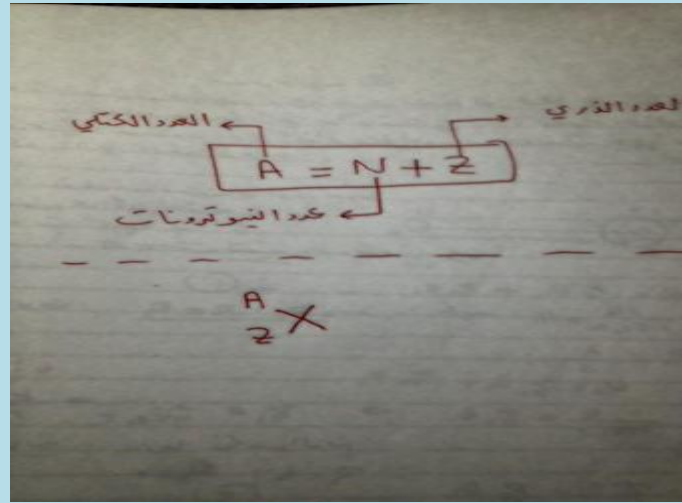 العدد الذري
العدد الكتلي
A = N + Z
عدد النيوترونات
A
Z X